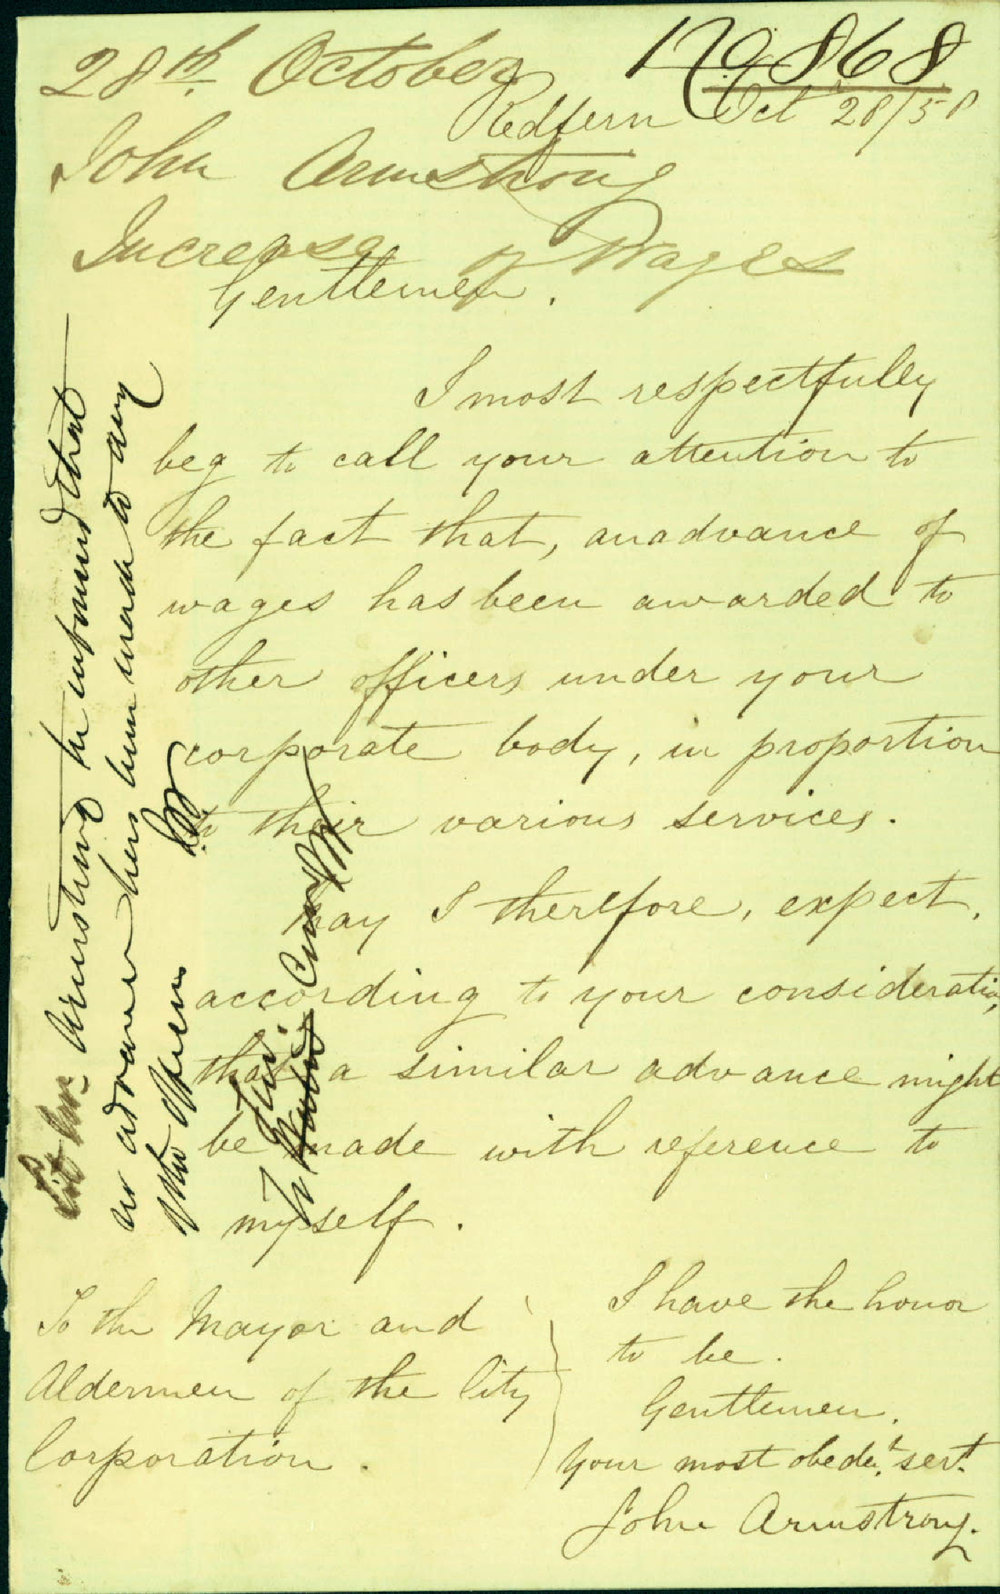 28th October
No 868
Redfern Oct 28/58
John Armstrong
Increase of Wages
Gentlemen.
I most respectfully
beg to call your attention to
the fact that, an advance of
wages has been awarded to
other officers under your
corporate body, in proportion
to their various services.
May I therefore, expect,
according to your consideration,
that a similar advance might
be made with reference to
myself.
To the Mayor and
Aldermen of the City
Corporation.
I have the honor
to be.
Gentlemen.
Your most obedt. sert.
John Armstrong.
Let Mr Armstrong be informed that
no advance has been made to any
other Officers